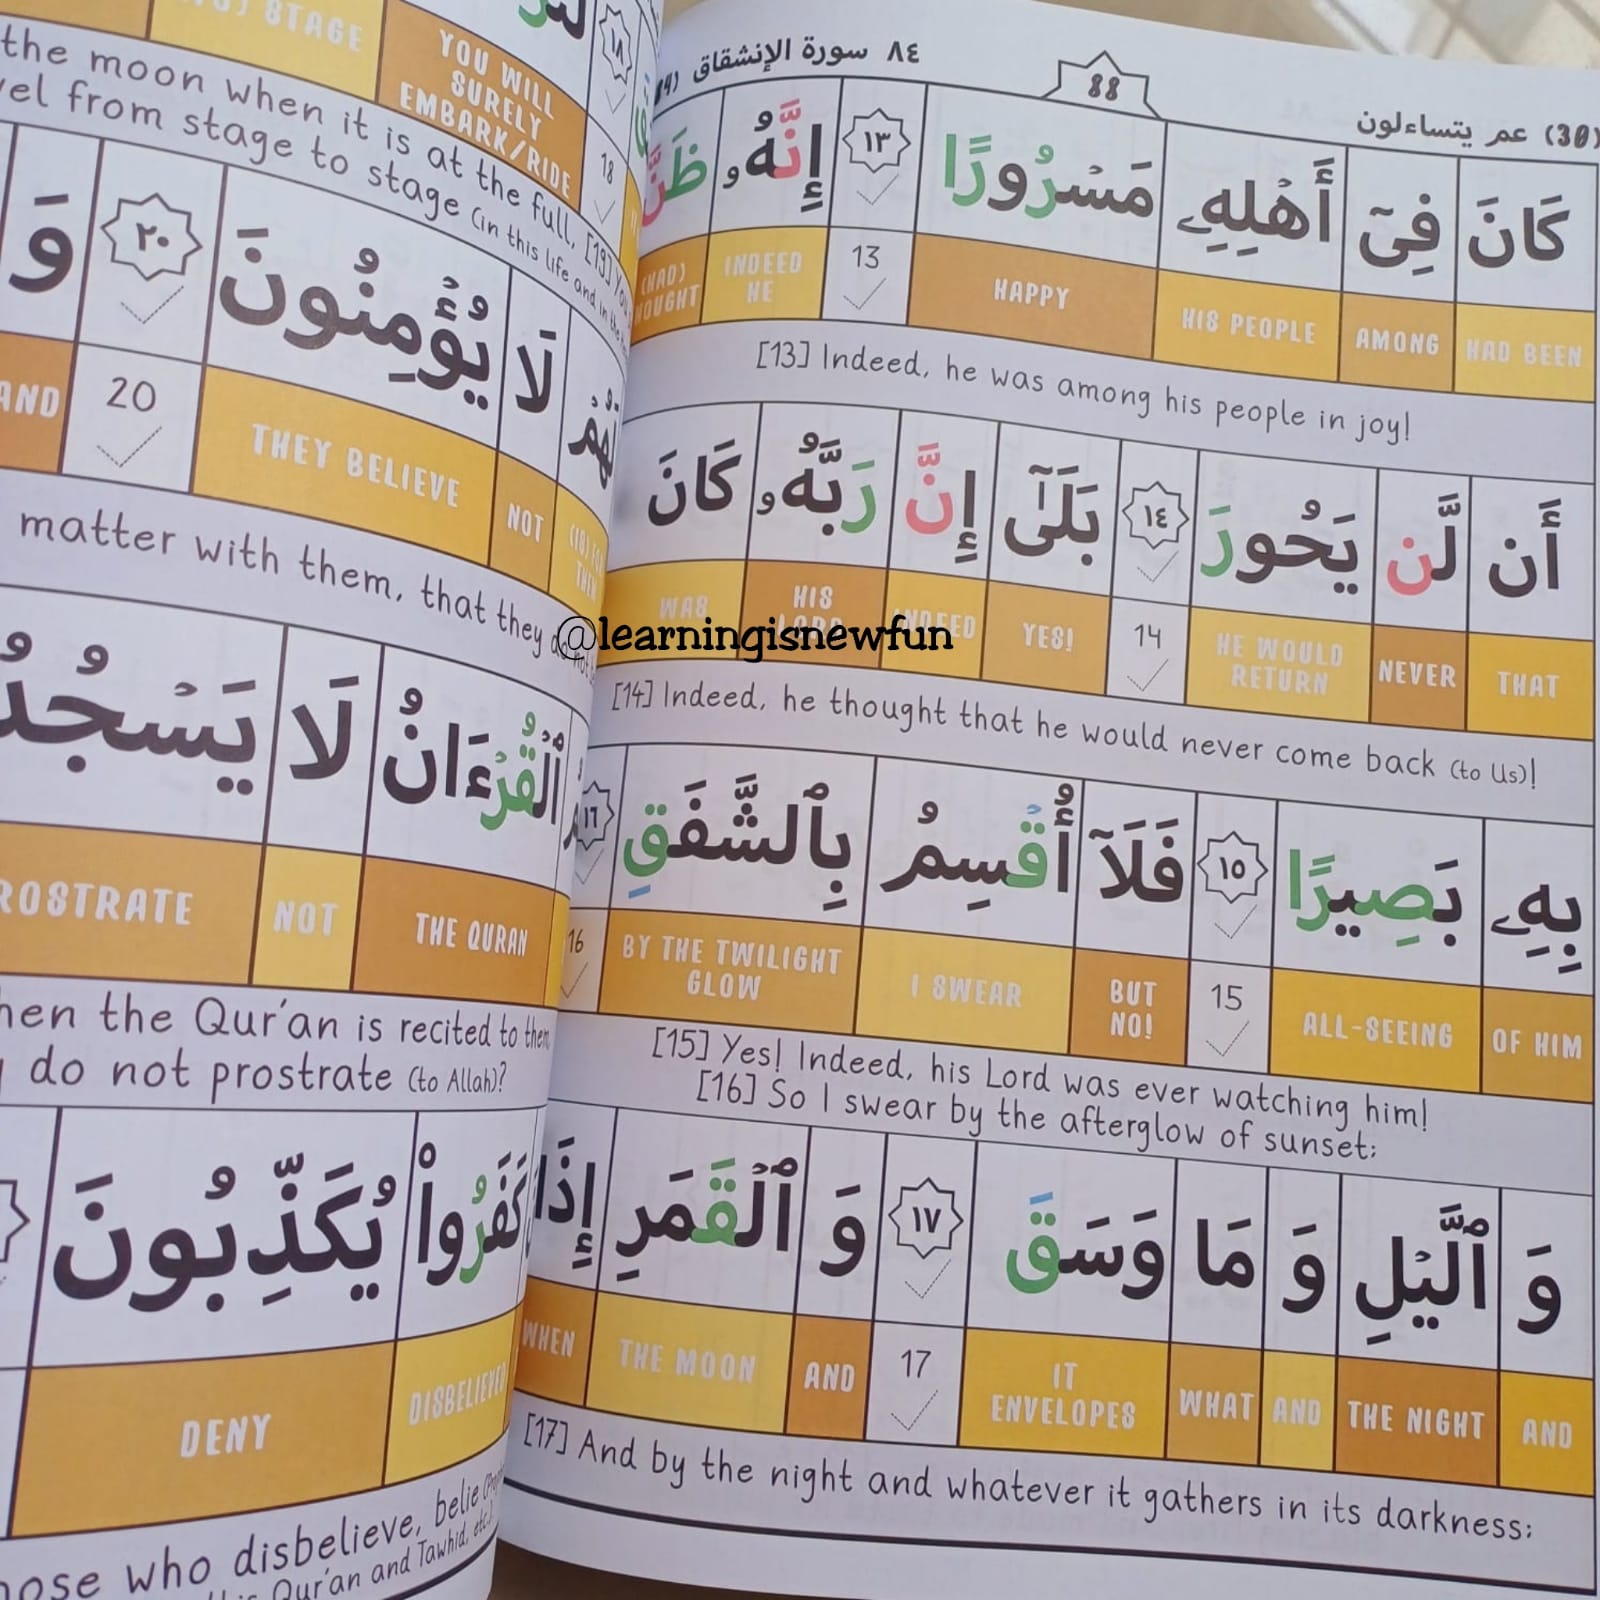 (30) عم يتساءلون
88
٨٤ سورة الإنشقاق
كَانَ فِىٓ أَهْلِهِۦ مَسْرُورًا ١٣ إِنَّهُۥ ظَنَّ
HAD BEEN AMONG HIS PEOPLE HAPPY 13 INDEED HE (HAD)
[13] Indeed, he was among his people in joy!
أَن لَّن يَحُورَ ١٤ بَلَىٰٓ إِنَّ رَبَّهُۥ كَانَ
THAT NEVER HE WOULD RETURN 14 YES! INDEED HIS LORD WAS
@learningisnewfun
[14] Indeed, he thought that he would never come back (to Us)!
بِهِۦ بَصِيرًا ١٥ فَلَآ أُقْسِمُ بِٱلشَّفَقِ ١٦
OF HIM ALL-SEEING 15 BUT NO! I SWEAR BY THE TWILIGHT GLOW 16
[15] Yes! Indeed, his Lord was ever watching him!
[16] So I swear by the afterglow of sunset:
وَ ٱلَّيْلِ وَ مَا وَسَقَ ١٧ وَ ٱلْقَمَرِ إِذَا
AND THE NIGHT AND WHAT IT ENVELOPES 17 AND THE MOON WHEN
[17] And by the night and whatever it gathers in its darkness:
١٨
STAGE YOU WILL SURELY EMBARK/RIDE 18
the moon when it is at the full, [19] You
from stage to stage (in this life and in the
لَهُمْ لَا يُؤْمِنُونَ ٢٠ وَ
FOR THEM NOT THEY BELIEVE 20 AND
matter with them, that they do not
ٱلْقُرْءَانُ لَا
THE QURAN NOT
the Qur'an is recited to them,
do not prostrate (to Allah)?
كَفَرُوا۟ يُكَذِّبُونَ
DISBELIEVED DENY
who disbelieve, belie
Qur'an and Tawhid, etc.).